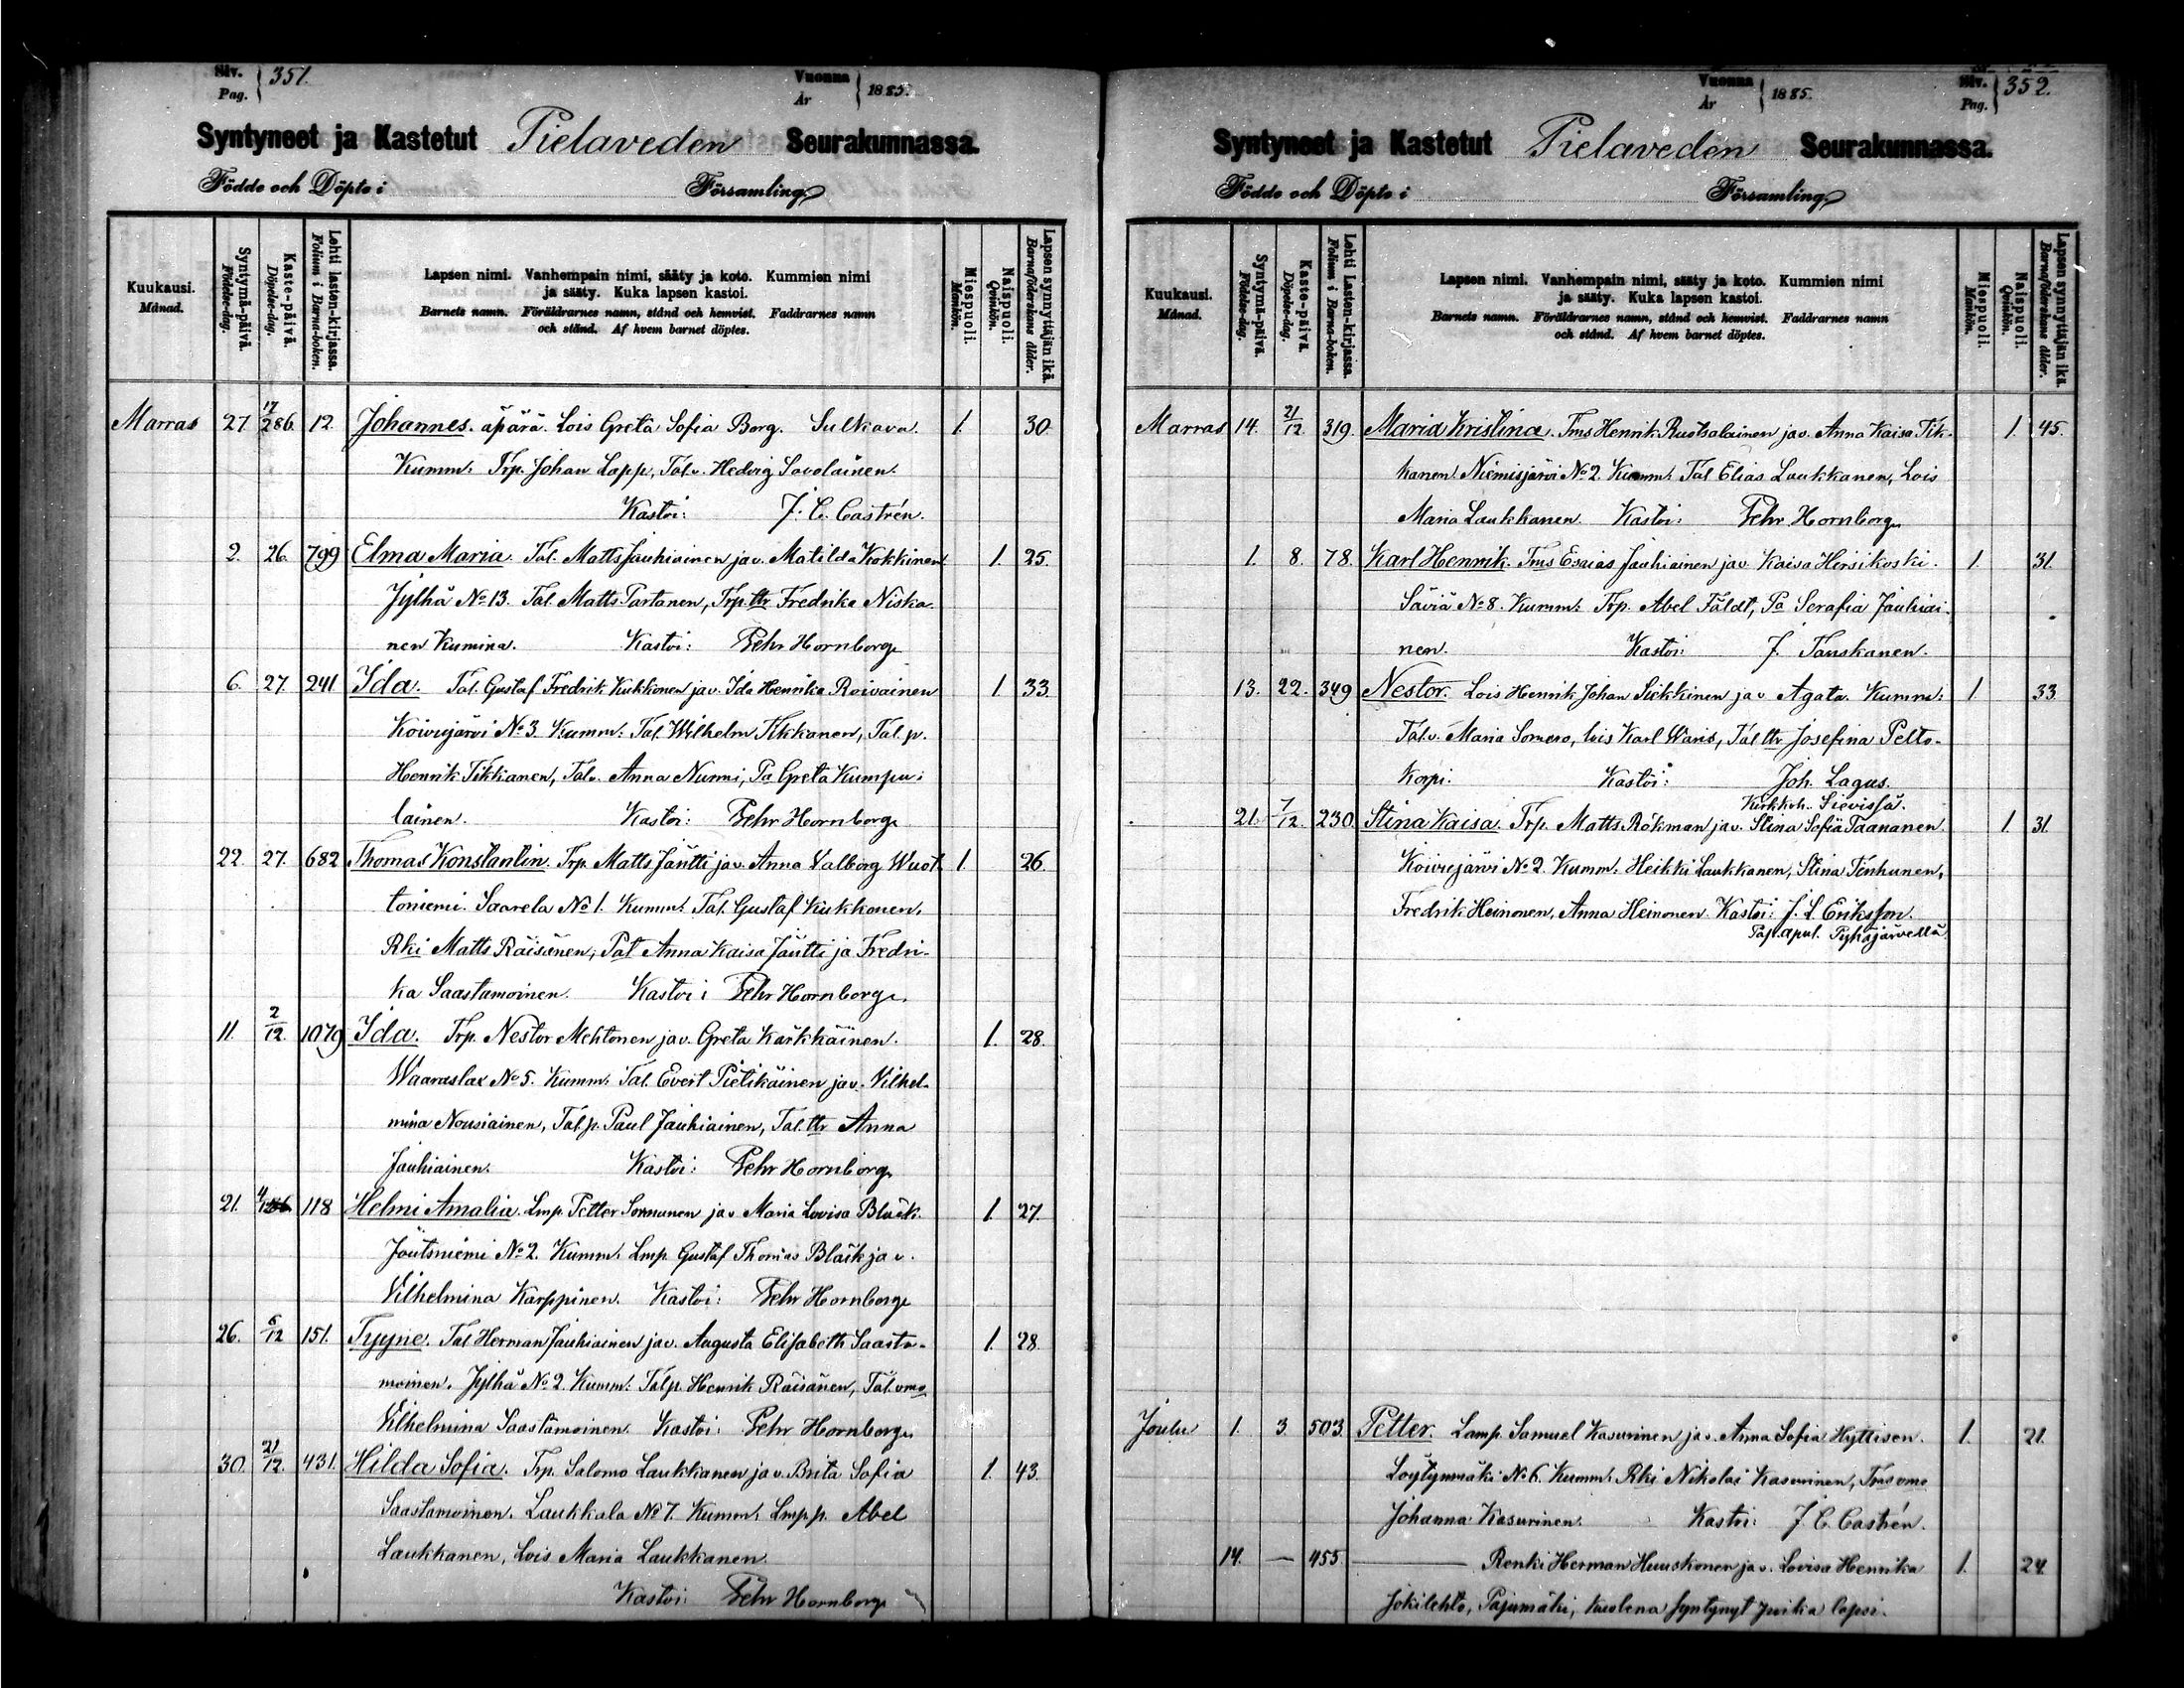 Siv. Pag. 351.
Vuonna År 1885.
Syntyneet ja Kastetut Pielaveden Seurakunnassa.
Födde och Döpte i Församling
Kuukausi. Månad.
Syntymä-päivä. Födelse-dag.
Kaste-päivä. Döpelse-dag.
Lehti lasten-kirjassa. Folium i Barna-boken.
Lapsen nimi. Vanhempain nimi, sääty ja koto. Kummien nimi
ja sääty. Kuka lapsen kastoi.
Barnets namn. Föräldrarnes namn, stånd och hemvist. Faddrarnes namn
och stånd. Af hvem barnet döptes.
Miespuoli. Mankön.
Naispuoli. Qvinkön.
Lapsen synnyttäjän ikä. Barnaföderskans ålder.
Marras 27 17/2 86. 12 Johannes. äpärä. Lois Greta Sofia Borg. Sulkava. 1. 30
Kumm: Trp. Johan Lapp, Tal.v. Hedvig Savolainen.
Kastoi: J. C. Castrén.
2. 26. 799 Elma Maria. Tal. Matts Jauhiainen ja v. Matilda Kokkinen. 1. 25.
Jylhä No 13. Tal. Matts Partanen, Trp. ttr Fredrika Niska-
nen Kumina. Kastoi: Pehr Hornborg
6. 27. 241 Ida. Tal. Gustaf Fredrik Kukkonen ja v. Ida Henrika Roivainen 1. 33.
Koivujärvi No 3. Kumm: Tal. Wilhelm Tikkanen, Tal. p.
Henrik Tikkanen, Tal.v. Anna Nurmi, Pa Greta Kumpu-
lainen. Kastoi: Pehr Hornborg
22. 27. 682 Thomas Konstantin. Trp. Matts Jäntti ja v. Anna Valborg Wuot 1. 26.
toniemi. Saarela No 1. Kumm: Tal. Gustaf Kukkonen,
Rki Matts Räisänen, Pat Anna Kaisa Jäntti ja Fredri-
ka Saastamoinen. Kastoi: Pehr Hornborg.
11. 2/12. 1079 Ida. Trp. Nestor Mehtonen ja v. Greta Kärkkäinen. 1. 28.
Waaraslax No 5. Kumm: Tal. Evert Pietikäinen ja v. Vilhel-
mina Nousiainen, Tal. p. Paul Jauhiainen, Tal. ttr Anna
Jauhiainen. Kastoi: Pehr Hornborg
21. 118 Helmi Amalia. Lmp. Petter Sormunen ja v. Maria Lovisa Bläck. 1. 27.
Joutsniemi No 2. Kumm: Lmp. Gustaf Thomas Bläck ja v.
Vilhelmina Karppinen. Kastoi: Pehr Hornborg
26. 6/12 151. Tyyne. Tal Herman Jauhiainen ja v. Augusta Elisabeth Saasta- 1. 28.
moinen. Jylhä No 2. Kumm: Tal p. Henrik Räisänen, Tal. vmo
Vilhelmina Saastamoinen. Kastoi: Pehr Hornborg
30. 21/12. 431. Hilda Sofia. Trp. Salomo Laukkanen ja v. Brita Sofia 1. 43.
Saastamoinen. Laukkala No 7. Kumm: Lmp. p. Abel
Laukkanen, Lois Maria Laukkanen.
Kastoi: Pehr Hornborg
Siv. Pag. 352.
Vuonna År 1885.
Syntyneet ja Kastetut Pielaveden Seurakunnassa.
Födde och Döpte i Församling
Kuukausi. Månad.
Syntymä-päivä. Födelse-dag.
Kaste-päivä. Döpelse-dag.
Lehti Lasten-kirjassa. Folium i Barna-boken.
Lapsen nimi. Vanhempain nimi, sääty ja koto. Kummien nimi
ja sääty. Kuka lapsen kastoi.
Barnets namn. Föräldrarnes namn, stånd och hemvist. Faddrarnes namn
och stånd. Af hvem barnet döptes.
Miespuoli. Mankön.
Naispuoli. Qvinkön.
Lapsen synnyttäjän ikä. Barnaföderskans ålder.
Marras 14. 21/12 319. Maria Kristina. Tms Henrik Ruotsalainen ja v. Anna Kaisa Tik- 1. 45.
kanen. Niemisjärvi No 2. Kumm: Tal Elias Laukkanen, Lois
Maria Laukkanen. Kastoi: Pehr Hornborg
1. 8. 78. Karl Henrik. Tms Esaias Jauhiainen ja v. Kaisa Hirsikoski. 1. 31.
Säviä No 8. Kumm: Trp. Abel Fäldt, Pa Serafia Jauhiai-
nen. Kastoi: J. Tanskanen.
13. 22. 349 Nestor. Lois Henrik Johan Sickkinen ja v Agata. Kumm: 1. 33.
Tal.v. Maria Somero, lois Karl Waris, Tal ttr Josefina Pelto-
korpi. Kastoi: Joh. Lagus.
Kirkkoh. Sievissä.
21. 7/12. 230. Stina Kaisa. Trp. Matts Rökman ja v. Stina Sofia Taananen. 1. 31.
Koivujärvi No 2. Kumm: Heikki Laukkanen, Stina Tenhunen,
Fredrik Heinonen, Anna Heinonen. Kastoi: J. L. Eriksson.
Pap. apul. Pyhäjärvellä
Joulu 1. 3. 503. Petter. Lamp. Samuel Kasurinen ja v. Anna Sofia Hyttisen. 1. 21.
Löytynmäki No 6. Kumm: Rki Nikolai Kasurinen, Tms vmo
Johanna Kasurinen. Kastoi: J. C. Castrén.
14. — 455. — Renki Herman Huuskonen ja v. Lovisa Henrika 1. 24.
Jokilehto, Pajumäki, kuolena syntynyt poika lapsi.